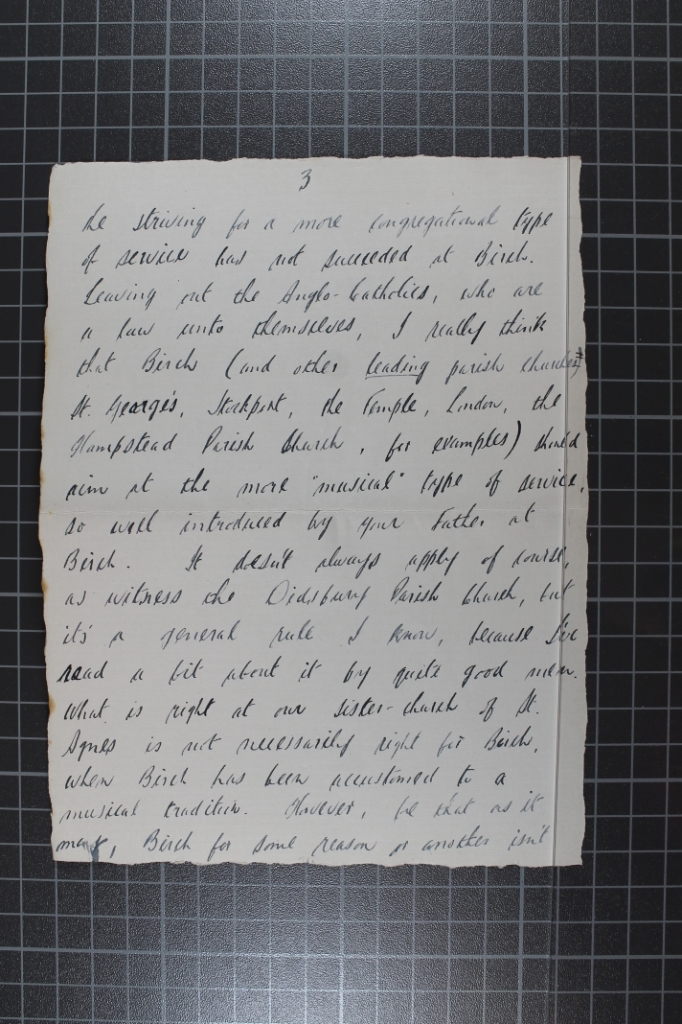 3
the striving for a more congregational type
of service has not succeeded at Birch.
Leaving out the Anglo-Catholics, who are
a law unto themselves, I really think
that Birch (and other leading parish churches,
St. George's, Stockport, the Temple, London, the
Hampstead Parish Church, for examples) should
aim at the more "musical" type of service,
so well introduced by your Father at
Birch. It doesn't always apply of course,
as witness the Didsbury Parish Church, but
it's a general rule I know, because I've
read a bit about it by quite good men.
What is right at our sister-church of St.
Agnes is not necessarily right for Birch,
when Birch has been accustomed to a
musical tradition. However, be that as it
may, Birch for some reason or another isn't